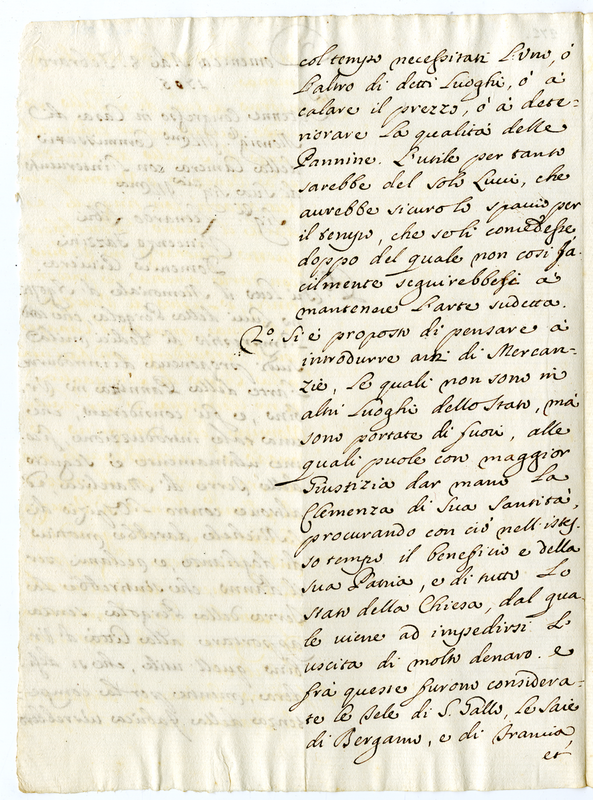 col tempo necessitati l'uno, ò
l'altro di detti Luoghi, ò à
calare il prezzo, ò à dete-
riorare la qualità delle
Pannine. L'utile per tanto
sarebbe del solo Luci, che
aurebbe sicuro lo spacio per
il tempo, che se li concedesse
doppo del quale non così fa-
cilmente seguirebbesi à
mantenere l'arte sudetta.
2.º Si è proposto di pensare à
introdurre arti di Mercan-
zie, le quali non sono in
altri Luoghi dello Stato, mà
sono portate di fuori, alle
quali puole con maggior
Giustizia dar mano la
Clemenza di Sua Santità,
procurando con ciò nell'istes-
so tempo il beneficio e della
sua Patria, e di tutto lo
Stato della Chiesa, dal qua-
le viene ad impedirsi l'
uscita di molto denaro. e
frà queste furono considera-
te le Tele di S. Gallo, le Saie
di Bergamo, e di Francia,
et